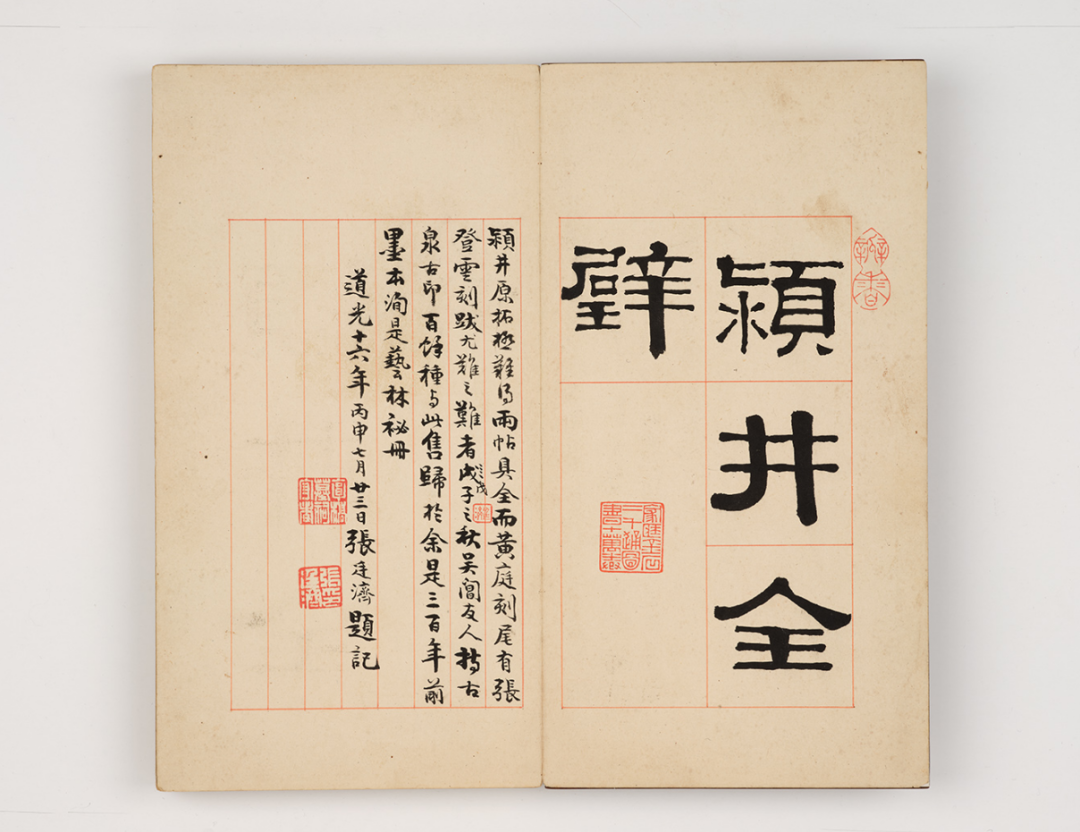 潁井全
璧
潁井原拓極難得兩帖具全而黃庭刻尾有張
登雲刻跋尤難之難者戊子之秋吳閶友人携古
泉古印百餘種与此售歸於余是三百年前
墨本洵是藝林祕冊
道光十六年丙申七月廿三日張廷濟題記